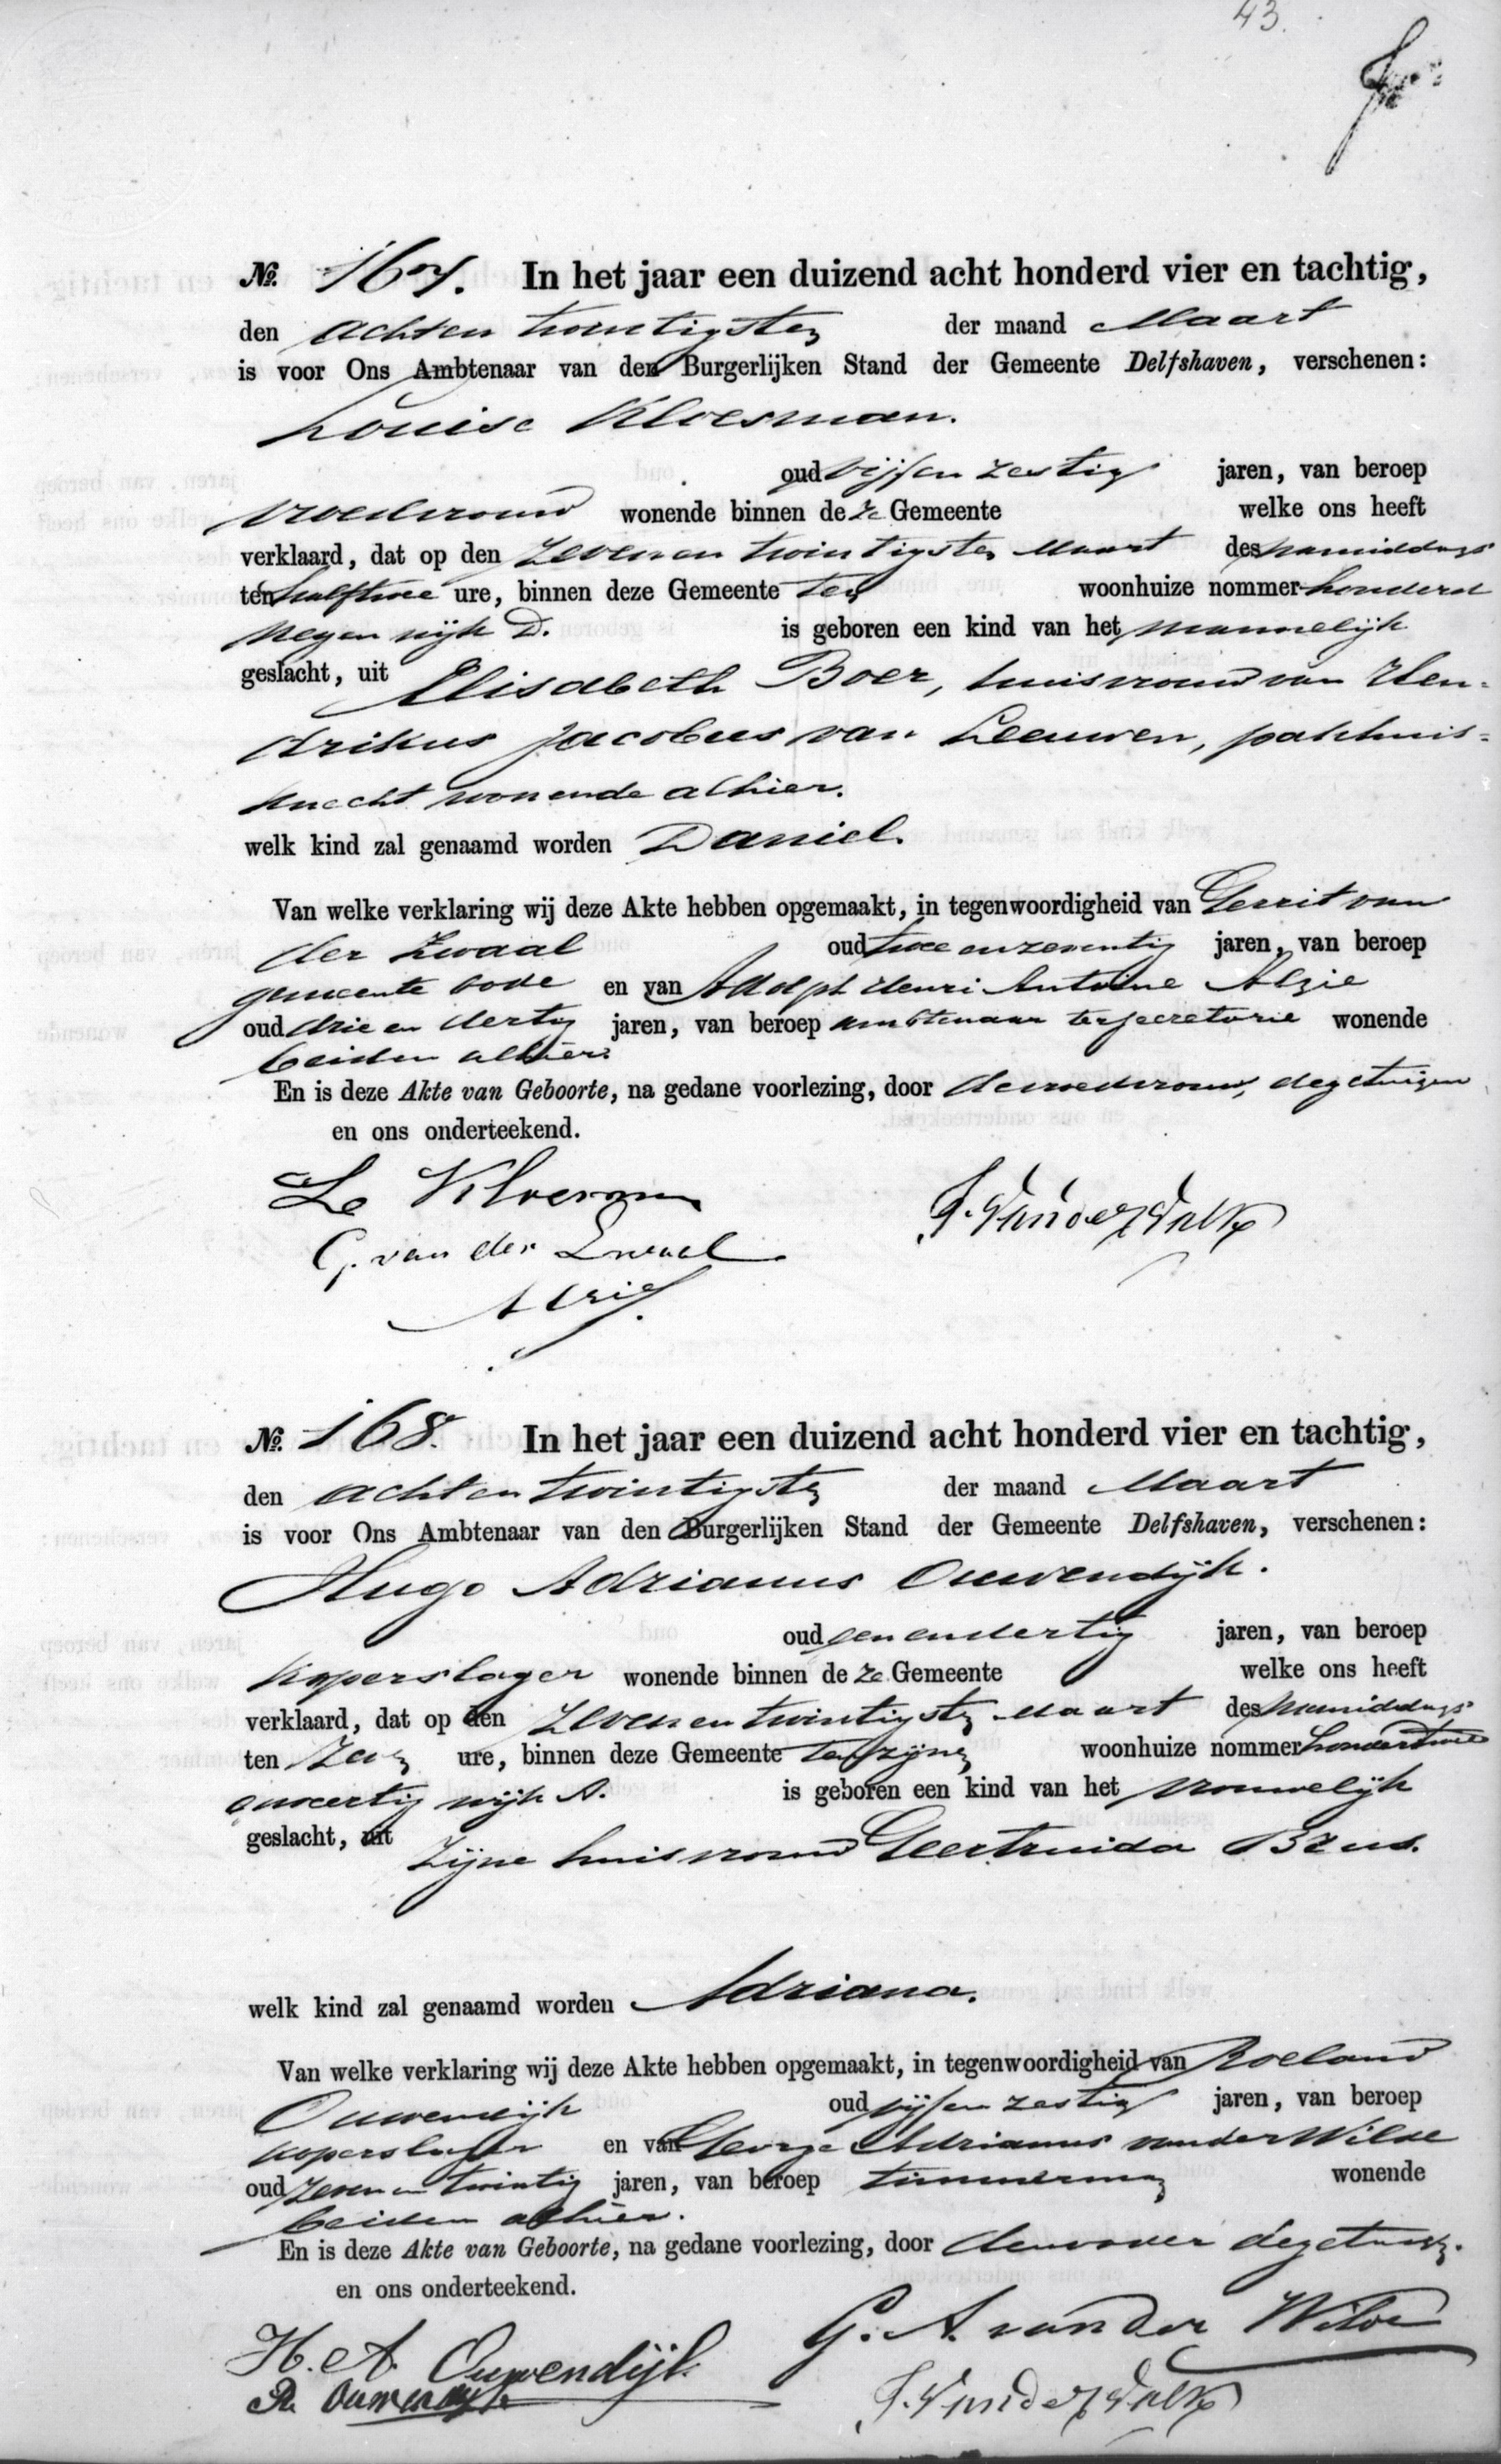 43.
No. 167. In het jaar een duizend acht honderd vier en tachtig,
den achten twintigsten der maand Maart
is voor Ons Ambtenaar van den Burgerlijken Stand der Gemeente Delfshaven, verschenen:
Louise Kloesman.
oud vijf en zestig jaren, van beroep
vroedvrouw wonende binnen de ze Gemeente welke ons heeft
verklaard, dat op den zeven en twintigsten Maart des namiddags
ten half twee ure, binnen deze Gemeente ten woonhuize nommer honderd
negen wijk D. is geboren een kind van het mannelijk
geslacht, uit Elisabeth Boer, huisvrouw van Hen-
drikus Jacobus van Leeuwen, pakhuis-
knecht wonende alhier.
welk kind zal genaamd worden Daniel.
Van welke verklaring wij deze Akte hebben opgemaakt, in tegenwoordigheid van Gerrit van
der Zwaal oud twee en zeventig jaren, van beroep
gemeente bode en van Adolph Henri Antoine
oud drie en dertig jaren, van beroep ambtenaar ter secretarie wonende
beiden alhier.
En is deze Akte van Geboorte, na gedane voorlezing, door de vroedvrouw, de getuigen
en ons onderteekend.
G. van der Zwaal
No. 168. In het jaar een duizend acht honderd vier en tachtig,
den acht en twintigsten der maand Maart
is voor Ons Ambtenaar van den Burgerlijken Stand der Gemeente Delfshaven, verschenen:
Hugo Adrianus Ouwendijk.
oud een en dertig jaren, van beroep
koperslager wonende binnen de ze Gemeente welke ons heeft
verklaard, dat op den zeven en twintigsten Maart des namiddags
ten zeven ure, binnen deze Gemeente ten zijnen woonhuize nommer honderd twee
en veertig wijk A. is geboren een kind van het vrouwelijk
geslacht, uit zijne huisvrouw Geertruida Brus.
welk kind zal genaamd worden Adriana.
Van welke verklaring wij deze Akte hebben opgemaakt, in tegenwoordigheid van Roeland
Ouwendijk oud vijf en zestig jaren, van beroep
koperslager en van George Adrianus van der Wilde
oud zeven en twintig jaren, van beroep timmerman wonende
beiden alhier.
En is deze Akte van Geboorte, na gedane voorlezing, door den vader de getuigen
en ons onderteekend.
H. A. Ouwendijk G. A. van der Wilde
R. Ouwendijk